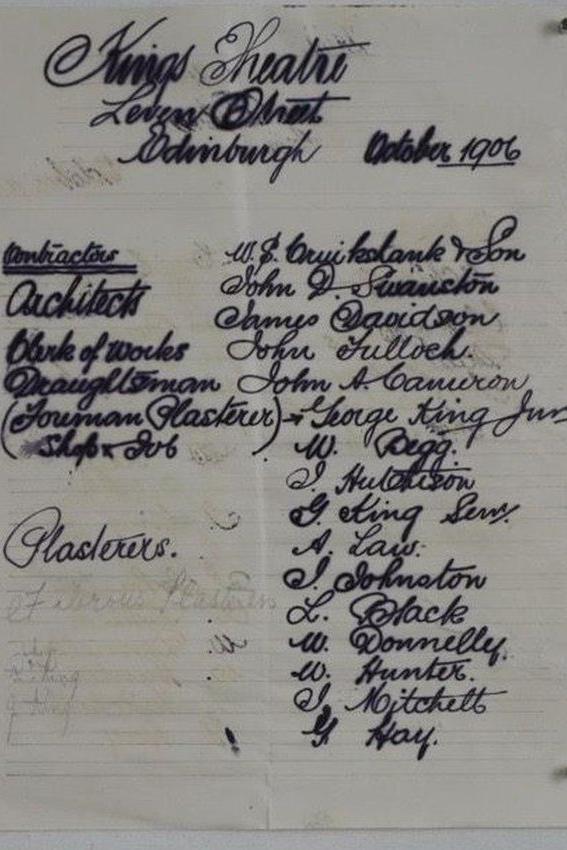 Kings Theatre
Leven Street
Edinburgh October 1906
Contractors W. S. Cruikshank & Son
Architects John D. Swanston
James Davidson
Clerk of Works John Tulloch.
Draughtsman John A Cameron
(Foreman Plasterer) George King Jun
Shop & Job W. Begg.
J Hutchison
G King Senr.
Plasterers. A. Law.
J. Johnston
Fibrous Plasterers
L. Black
W. Donnelly.
W. Hunter.
J Mitchell
G Hay.